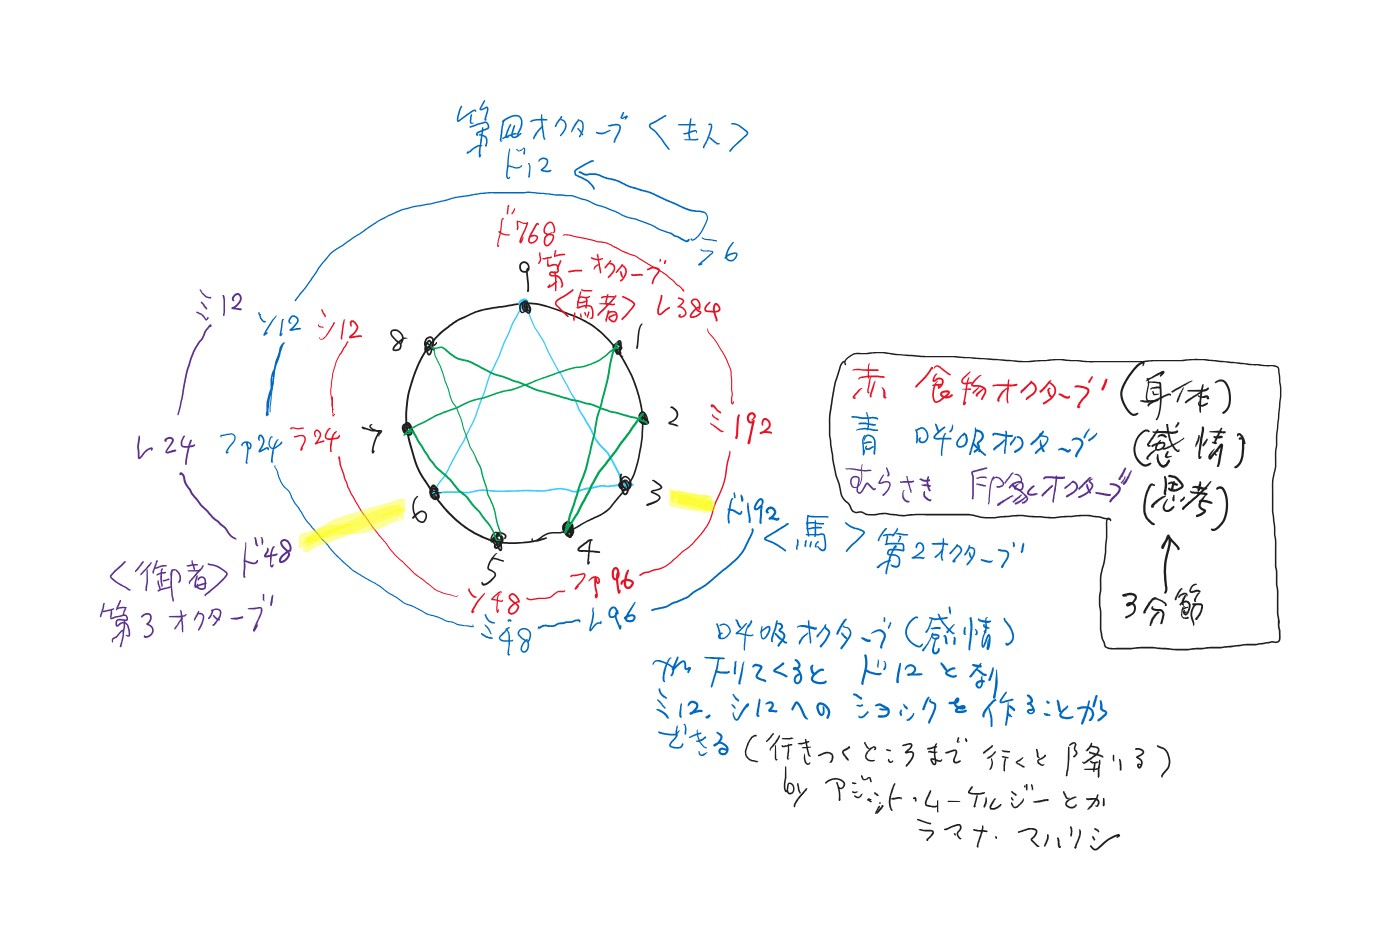 第四オクターブ〈主人〉
ド12
ラ6
ド768
第一オクターブ
〈馬者〉
レ384
9
1
8
2
7
3
6
4
5
ミ12
ソ12
シ12
レ24
ファ24
ラ24
ミ192
ド192
〈馬〉第2オクターブ
ド48
〈御者〉
第3オクターブ
ソ48
ファ96
ミ48
レ96
赤 食物オクターブ(身体)
青 呼吸オクターブ(感情)
むらさき 印象オクターブ(思考)
3分節
呼吸オクターブ(感情)
が下りてくるとド12となり
ミ12.シ12へのショックを作ることが
できる(行きつくところまで行くと降りる)
by アジット・ムーケルジーとか
ラマナ・マハリシ